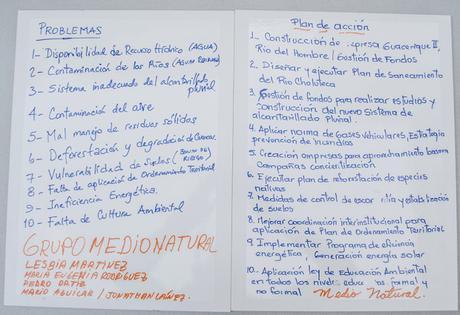 PROBLEMAS
1- Disponibilidad de Recurso Hídrico (AGUA)
2- Contaminación de los Ríos
3- Sistema inadecuado del alcantarillado
pluvial
4- Contaminación del aire
5- Mal manejo de residuos sólidos
6- Deforestación y degradación de
7- Vulnerabilidad de Suelos
RIESGO)
8- Falta de aplicación de Ordenamiento Territorial
9- Ineficiencia Energética.
10- Falta de Cultura Ambiental
GRUPO MEDIO NATURAL
LESBIA MARTINEZ
MARIA EUGENIA RODRÍGUEZ
PEDRO ORTIZ
MARIO AGUILAR / JONATHAN LAÍNEZ.
Plan de acción
1- Construcción de represa Guacerique II,
Rio del Hombre / Gestión de Fondos
2- Diseñar y ejecutar Plan de Saneamiento
del Rio Choluteca
3- Gestión de fondos para realizar estudios y
construcción del nuevo sistema de
alcantarillado Pluvial.
4- Aplicar norma de Gases Vehiculares, Estrategia
prevención de incendios
5- Creación empresas para aprovechamiento basura
Campañas concientización
6- Ejecutar plan de reforestación de especies
nativas
7- Medidas de control de escorrentía y estabilización
de suelos
8- Mejorar coordinación interinstitucional para
aplicación de Plan de Ordenamiento Territorial
9- Implementar Programa de eficiencia
energética, Generación energía solar
10- Aplicación ley de Educación Ambiental
en todos los niveles educativos formal y
no formal Medio Natural.